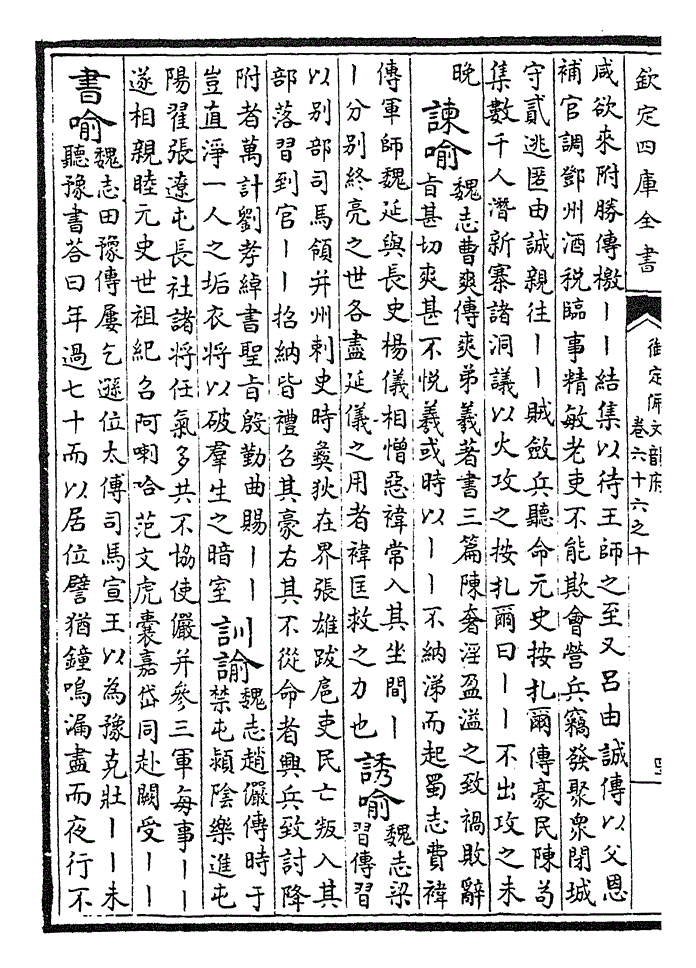 欽定四庫全書
御定佩文韻府
卷六十六之十
四
咸欲來附勝傳檄丨丨結集以待王師之至又呂由誠傳以父恩
補官調鄧州酒税臨事精敏老吏不能欺會營兵竊發聚衆閉城
守貳逃匿由誠親往丨丨賊斂兵聽命元史按扎爾傳豪民陳苟
集數千人潛新寨諸洞議以火攻之按扎爾曰丨丨不出攻之未
晚
諫喻
魏志曹爽傳爽弟羲著書三篇陳奢淫盈溢之致禍敗辭
旨甚切爽甚不悦羲或時以丨丨不納涕而起蜀志費禕
傳軍師魏延與長史楊儀相憎惡禕常入其坐間丨
丨分别終亮之世各盡延儀之用者禕匡救之力也
誘喻
魏志梁
習傳習
以别部司馬領并州刺史時彝狄在界張雄跋扈吏民亡叛入其
部落習到官丨丨招納皆禮召其豪右其不從命者興兵致討降
附者萬計劉孝綽書聖旨殷勤曲賜丨丨
豈直淨一人之垢衣將以破羣生之暗室
訓諭
魏志趙儼傳時于
禁屯潁陰樂進屯
陽翟張遼屯長社諸將任氣多共不協使儼并參三軍每事丨丨
遂相親睦元史世祖紀召阿喇哈范文虎囊嘉岱同赴闕受丨丨
書喻
魏志田豫傳屢乞遜位太傅司馬宣王以為豫克壯丨丨未
聽豫書荅曰年過七十而以居位譬猶鐘鳴漏盡而夜行不